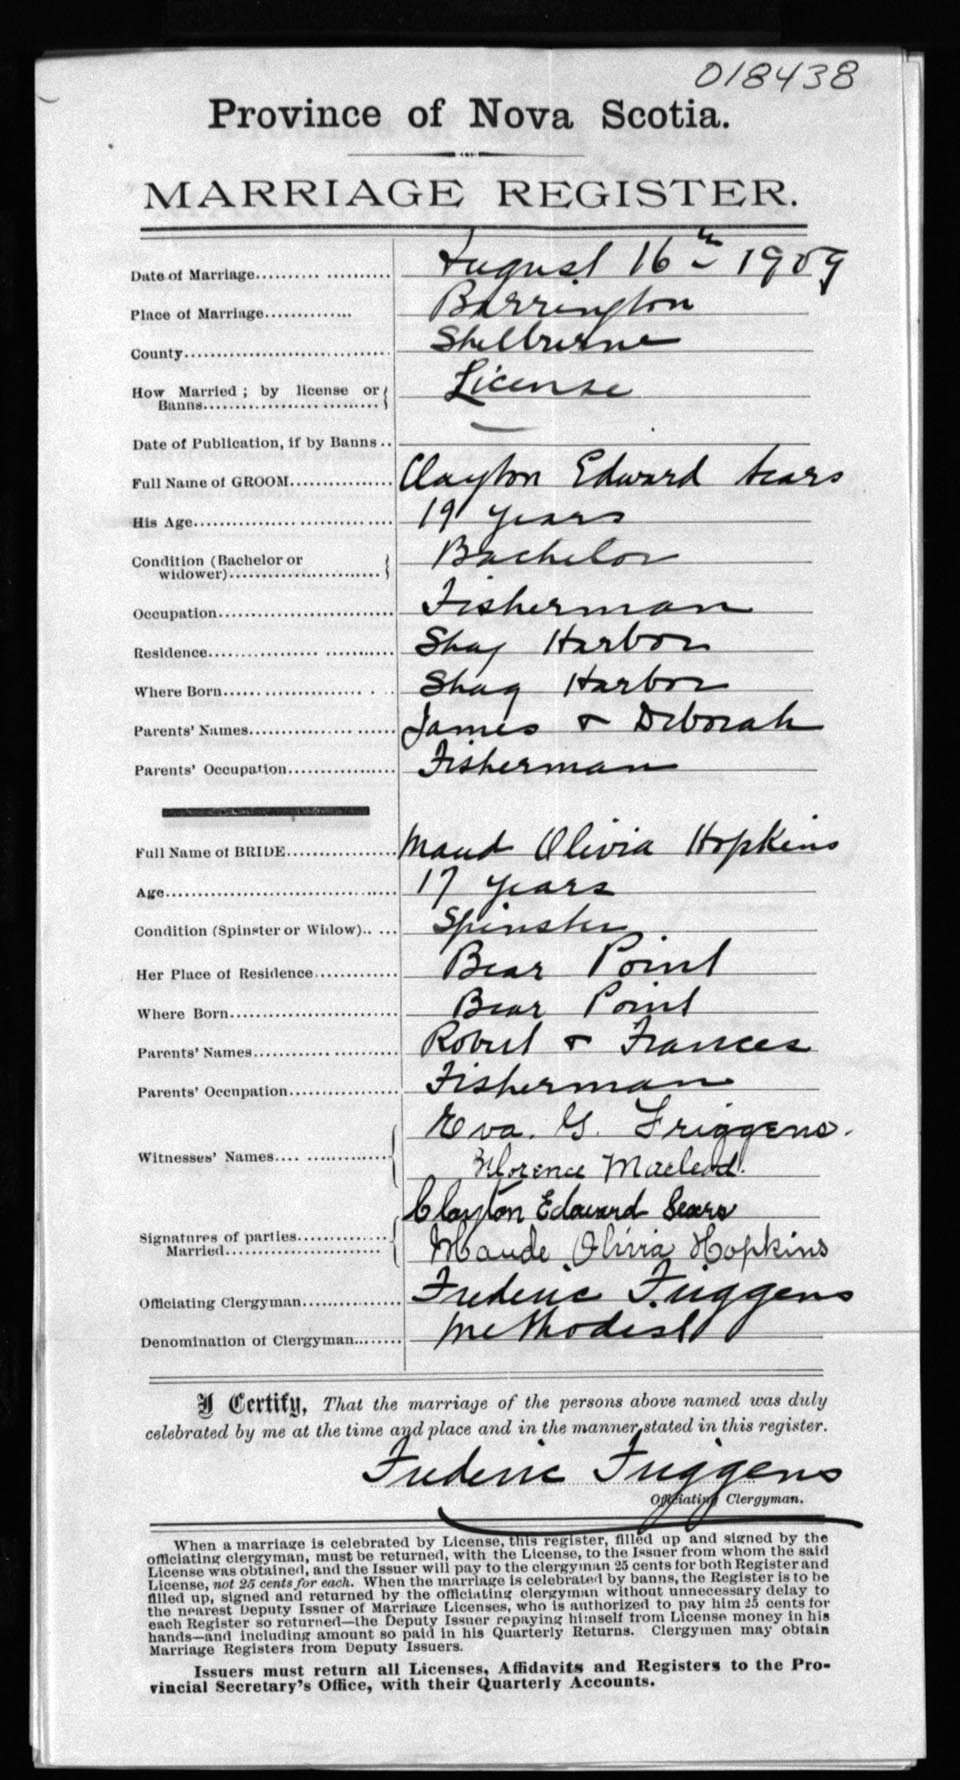 018438
Province of Nova Scotia.
MARRIAGE REGISTER.
Date of Marriage.......... ........... August 16th 1909
Place of Marriage.............. Barrington
County................................. Shelburne
How Married ; by license or License
Banns.............................
Date of Publication, if by Banns .. —
Full Name of GROOM................ Clayton Edward Sears
His Age................................ 19 years
Condition (Bachelor or Bachelor
widower)........................
Occupation............................ Fisherman
Residence............... ........... Shag Harbor
Where Born............................ Shag Harbor
Parents' Names........................ James & Deborah
Parents' Occupation................. Fisherman
Full Name of BRIDE................. Maud Olivia Hopkins
Age..................................... 17 years
Condition (Spinster or Widow).. ... Spinster
Her Place of Residence............. Bear Point
Where Born........................... Bear Point
Parents' Names....................... Robert & Frances
Parents' Occupation................. Fisherman
Eva. G. Friggens.
Witnesses' Names.... ...............
Florence Macleod.
Clayton Edward Sears
Signatures of parties..............
Married........................ Maude Olivia Hopkins
Officiating Clergyman............... Frederic Friggens
Denomination of Clergyman........ Methodist
I Certify, That the marriage of the persons above named was duly
celebrated by me at the time and place and in the manner stated in this register.
Frederic Friggens
Officiating Clergyman.
When a marriage is celebrated by License, this register, filled up and signed by the
officiating clergyman, must be returned, with the License, to the Issuer from whom the said
License was obtained, and the Issuer will pay to the clergyman 25 cents for both Register and
License, not 25 cents for each. When the marriage is celebrated by banns, the Register is to be
filled up, signed and returned by the officiating clergyman without unnecessary delay to
the nearest Deputy Issuer of Marriage Licenses, who is authorized to pay him 25 cents for
each Register so returned—the Deputy Issuer repaying himself from License money in his
hands—and including amount so paid in his Quarterly Returns. Clergymen may obtain
Marriage Registers from Deputy Issuers.
Issuers must return all Licenses, Affidavits and Registers to the Pro-
vincial Secretary's Office, with their Quarterly Accounts.